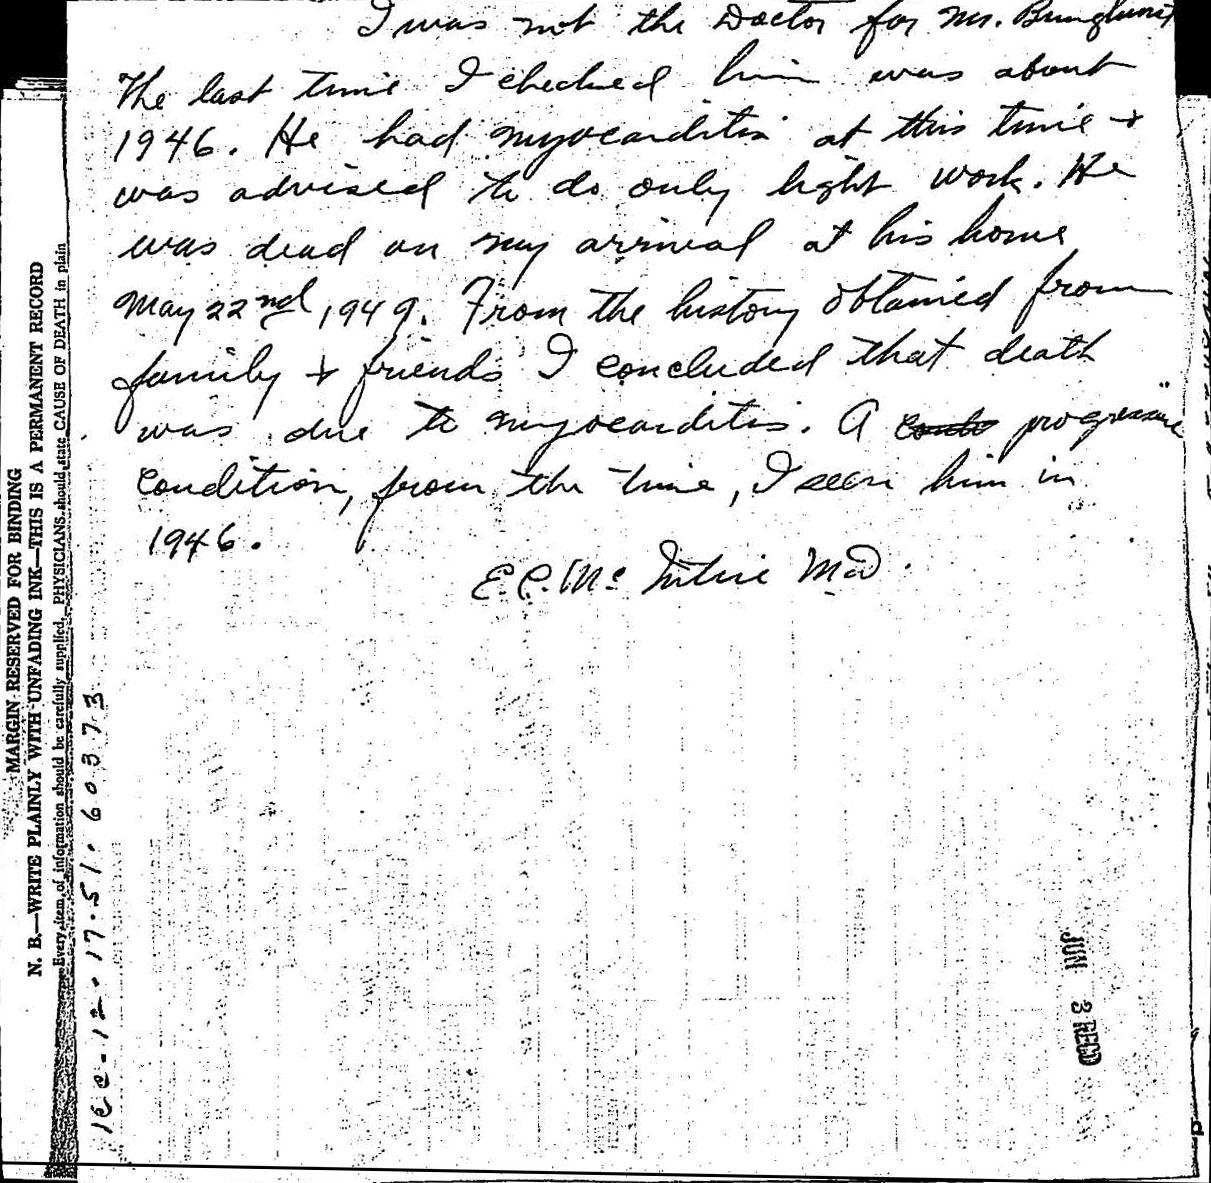 I was not the Doctor for Mr.
The last time I checked him was about
1946. He had myocarditis at this time +
was advised to do only light work. He
was dead on my arrival at his home
May 22nd, 1949. From the history obtained from
family + friends I concluded that death
was due to myocarditis. A progressive
condition, from the time, I seen him in
1946.
E.C. Mc Intire MD.
MARGIN RESERVED FOR BINDING
N. B.—WRITE PLAINLY WITH UNFADING INK—THIS IS A PERMANENT RECORD
Every item of information should be carefully supplied. PHYSICIANS should state CAUSE OF DEATH in plain
12.17.51. 60373
JUN 3 RECD